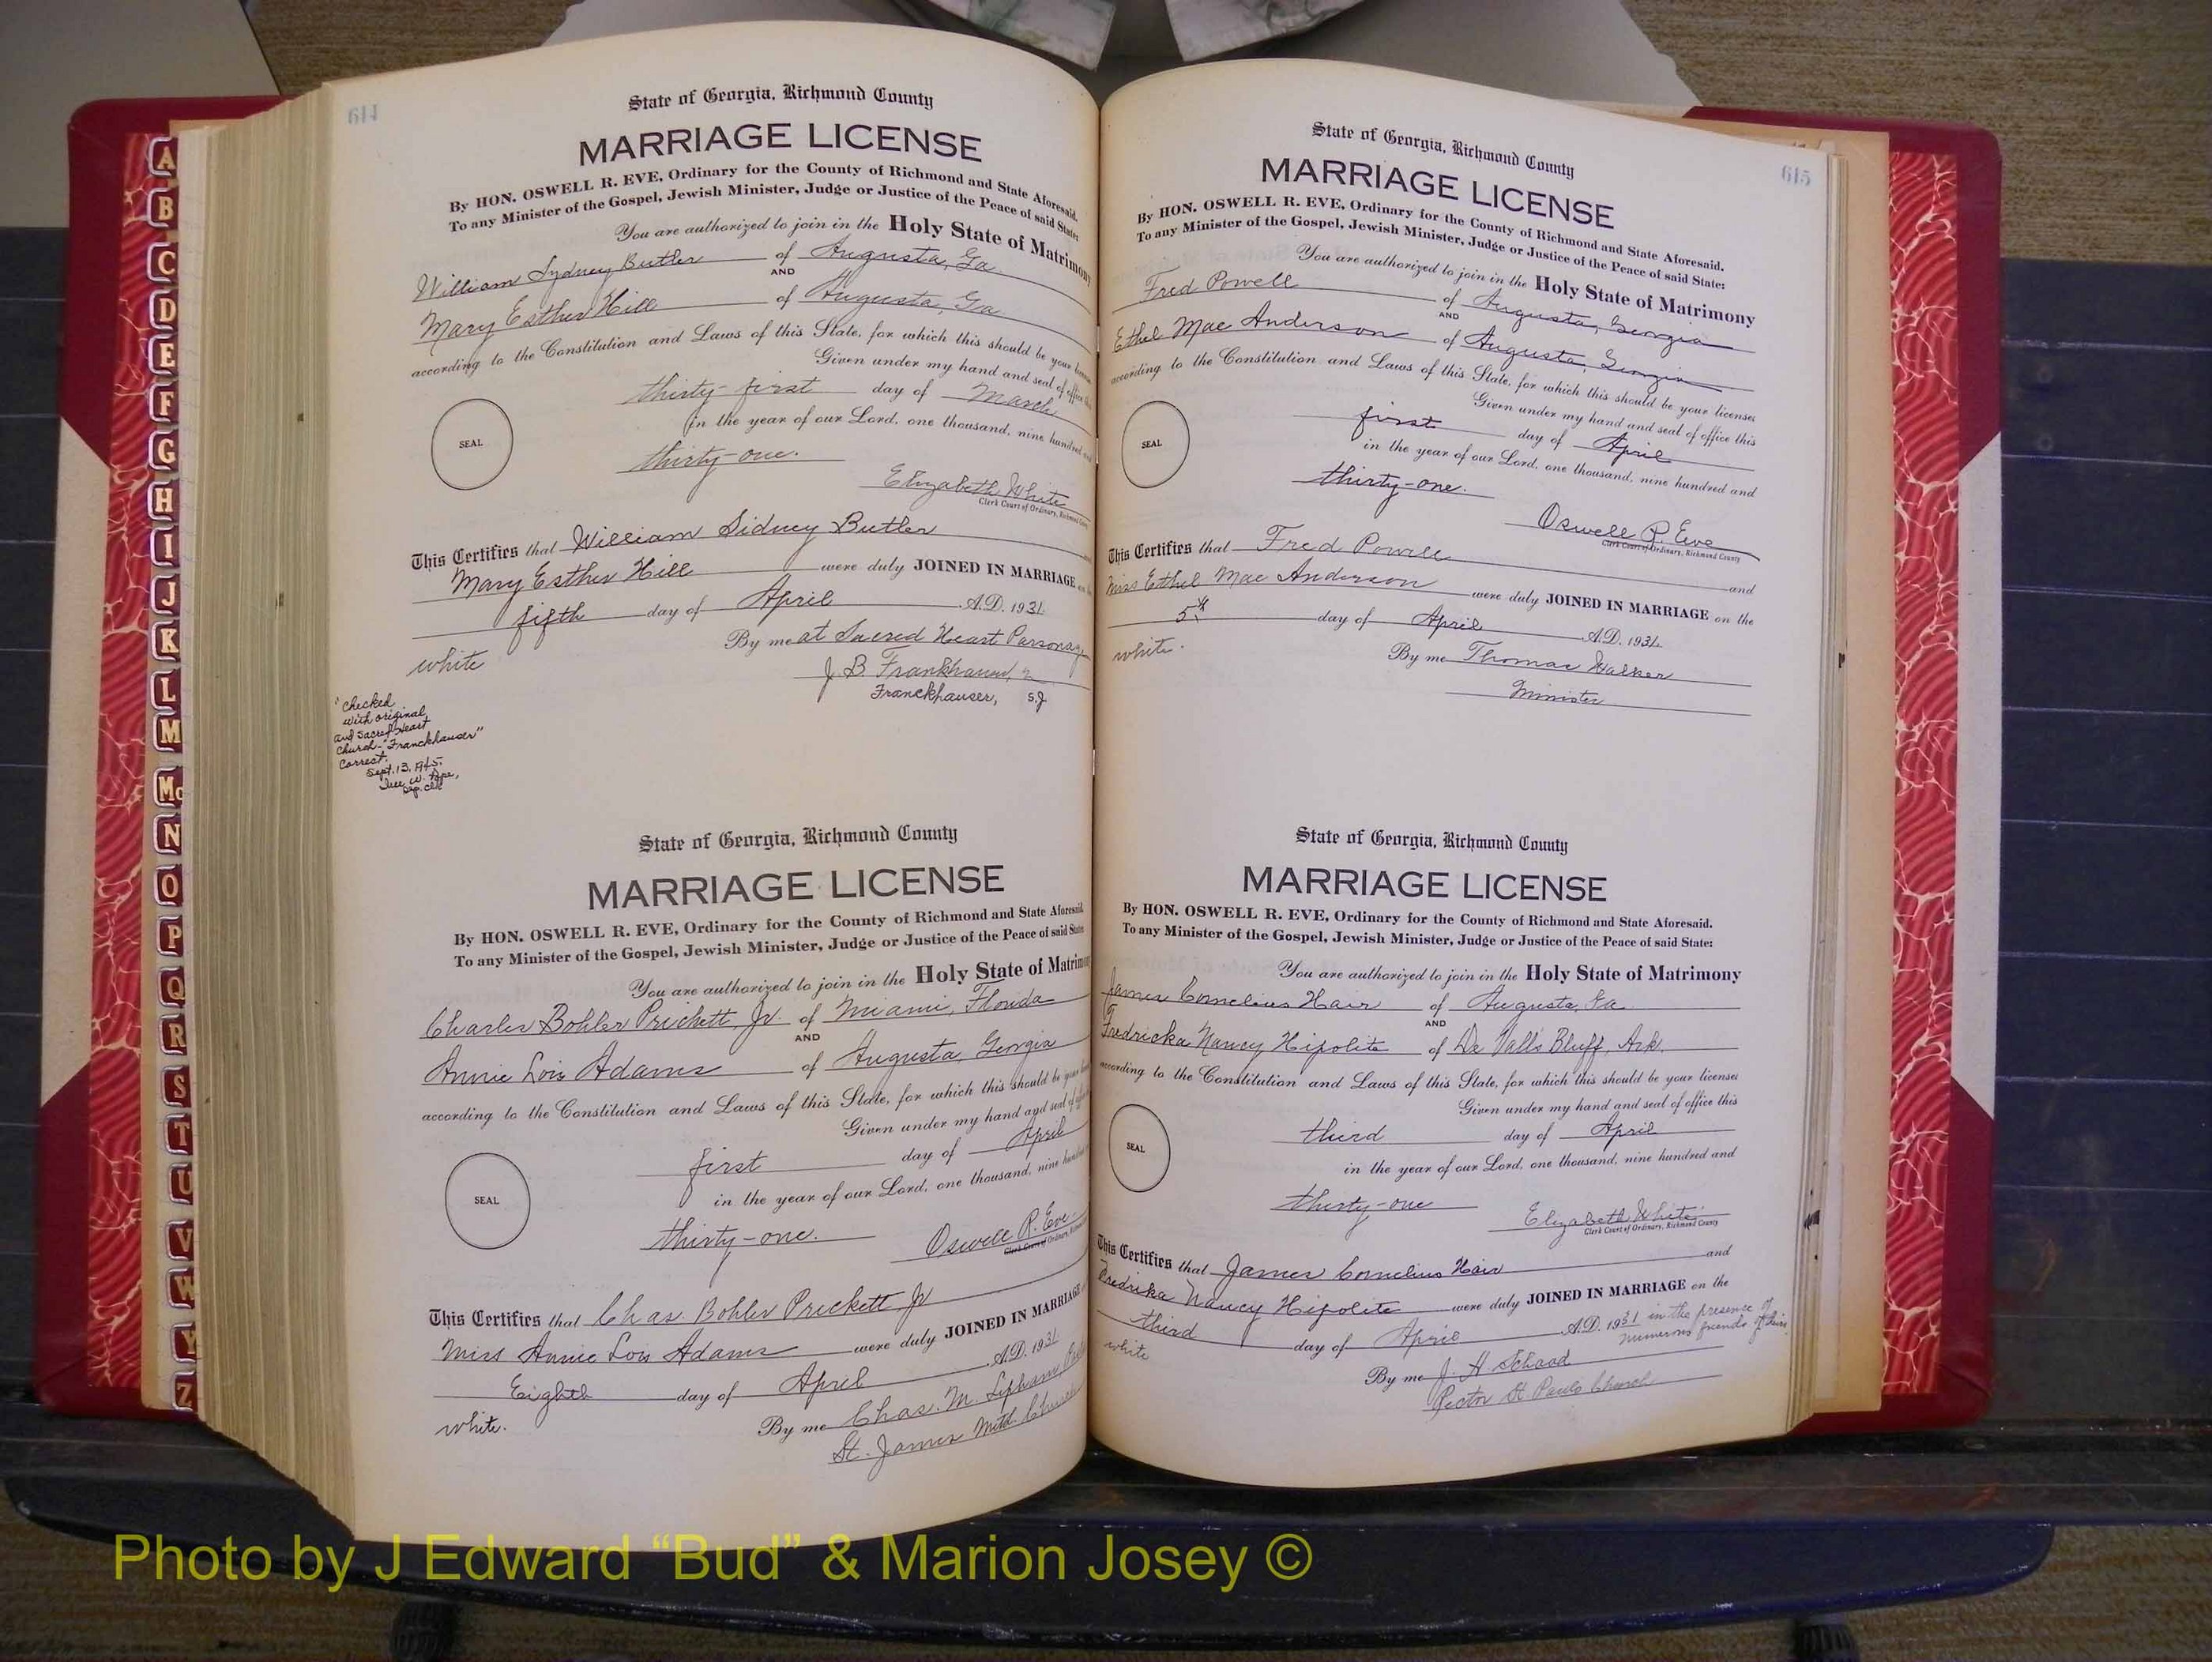 614
State of Georgia, Richmond County
MARRIAGE LICENSE
By HON. OSWELL R. EVE, Ordinary for the County of Richmond and State Aforesaid.
To any Minister of the Gospel, Jewish Minister, Judge or Justice of the Peace of said State:
You are authorized to join in the Holy State of Matrimony
William Sydney Butler of Augusta, Ga
AND
Mary Esther Hill of Augusta, Ga
according to the Constitution and Laws of this State, for which this should be your
Given under my hand and seal of office
thirty-first day of March
in the year of our Lord, one thousand, nine hundred
SEAL
thirty-one.
Elizabeth White
Clerk Court of Ordinary, Richmond County
This Certifies that William Sidney Butler
Mary Esther Hill were duly JOINED IN MARRIAGE
fifth day of April A.D. 1931
By me at Sacred Heart Parsonage
white
J B Frankhauser,
Franckhauser, S.J
"Checked
with original
and Sacred Heart
Church-"Franckhauser"
Correct.
Sept. 13, 1945.
W. Pope,
Dep. Clk
State of Georgia, Richmond County
MARRIAGE LICENSE
By HON. OSWELL R. EVE, Ordinary for the County of Richmond and State Aforesaid.
To any Minister of the Gospel, Jewish Minister, Judge or Justice of the Peace of said State
You are authorized to join in the Holy State of Matrimony
Charles Bohler Prickett, Jr. of Miami, Florida
AND
Annie Lois Adams of Augusta, Georgia
according to the Constitution and Laws of this State, for which this should be your
Given under my hand and seal of
first day of April
in the year of our Lord, one thousand, nine hundred
SEAL
thirty-one.
Oswell R. Eve
Clerk Court of Ordinary,
This Certifies that Chas. Bohler Prickett Jr
Miss Annie Lois Adams were duly JOINED IN MARRIAGE
Eighth day of April A.D. 1931
By me Chas. M. Lipham
white.
St. James Meth. Church
615
State of Georgia, Richmond County
MARRIAGE LICENSE
By HON. OSWELL R. EVE, Ordinary for the County of Richmond and State Aforesaid.
To any Minister of the Gospel, Jewish Minister, Judge or Justice of the Peace of said State:
You are authorized to join in the Holy State of Matrimony
Fred Powell of Augusta, Georgia
AND
Ethel Mae Anderson of Augusta, Georgia
according to the Constitution and Laws of this State, for which this should be your licenses
Given under my hand and seal of office this
first day of April
in the year of our Lord, one thousand, nine hundred and
SEAL
thirty-one.
Oswell R. Eve
Clerk Court of Ordinary, Richmond County
This Certifies that Fred Powell and
Miss Ethel Mae Anderson were duly JOINED IN MARRIAGE on the
5th day of April A.D. 1931
By me Thomas Walker
white.
Minister
State of Georgia, Richmond County
MARRIAGE LICENSE
By HON. OSWELL R. EVE, Ordinary for the County of Richmond and State Aforesaid.
To any Minister of the Gospel, Jewish Minister, Judge or Justice of the Peace of said State:
You are authorized to join in the Holy State of Matrimony
James Cornelius Hair of Augusta, Ga
AND
Fredricka Nancy Hipolite of De Valls Bluff, Ark.
according to the Constitution and Laws of this State, for which this should be your licenses
Given under my hand and seal of office this
third day of April
in the year of our Lord, one thousand, nine hundred and
SEAL
thirty-one
Elizabeth White
Clerk Court of Ordinary, Richmond County
This Certifies that James Cornelius Hair and
Fredrika Nancy Hipolite were duly JOINED IN MARRIAGE on the
third day of April A.D. 1931 in the presence of
numerous friends of theirs.
white
By me J. H. Schaad
Rector St. Pauls Church
A
B
C
D
E
F
G
H
I
J
K
L
M
Mc
N
O
P
Q
R
S
T
U
V
W
Y
Z
Photo by J Edward “Bud” & Marion Josey ©